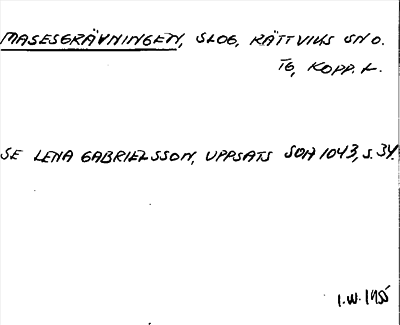 MASESGRÄVNINGEN, SLOG, RÄTTVIKS SN O.
TG, KOPP. L.
SE LENA GABRIELSSON, UPPSATS SOA 1043, S. 34.
I.W. 1955